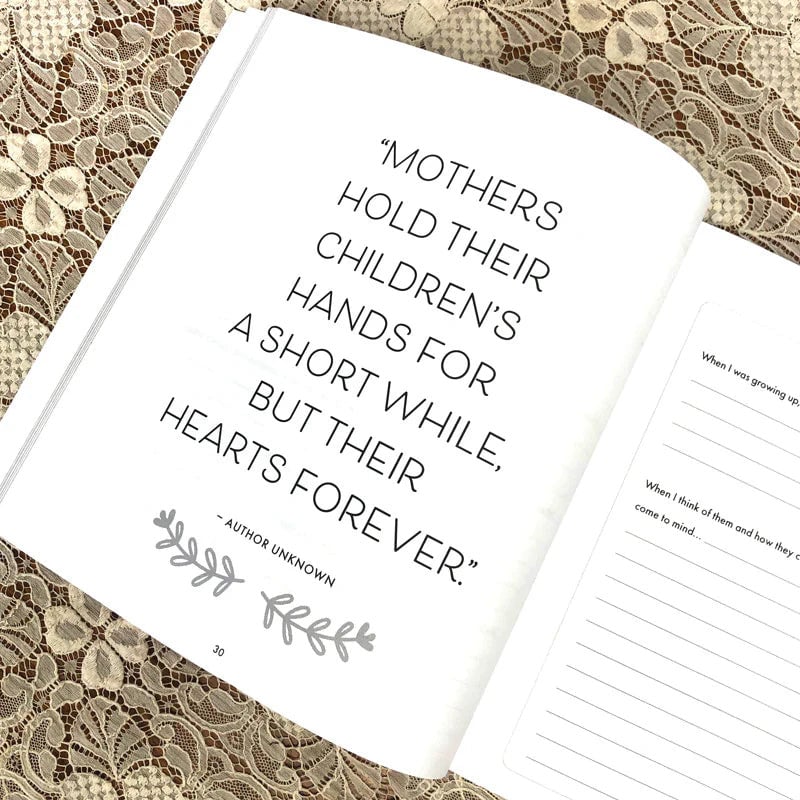 “MOTHERS
HOLD THEIR
CHILDREN’S
HANDS FOR
A SHORT WHILE,
BUT THEIR
HEARTS FOREVER.”
– AUTHOR UNKNOWN
30
When I was growing up,
When I think of them and how they
come to mind...